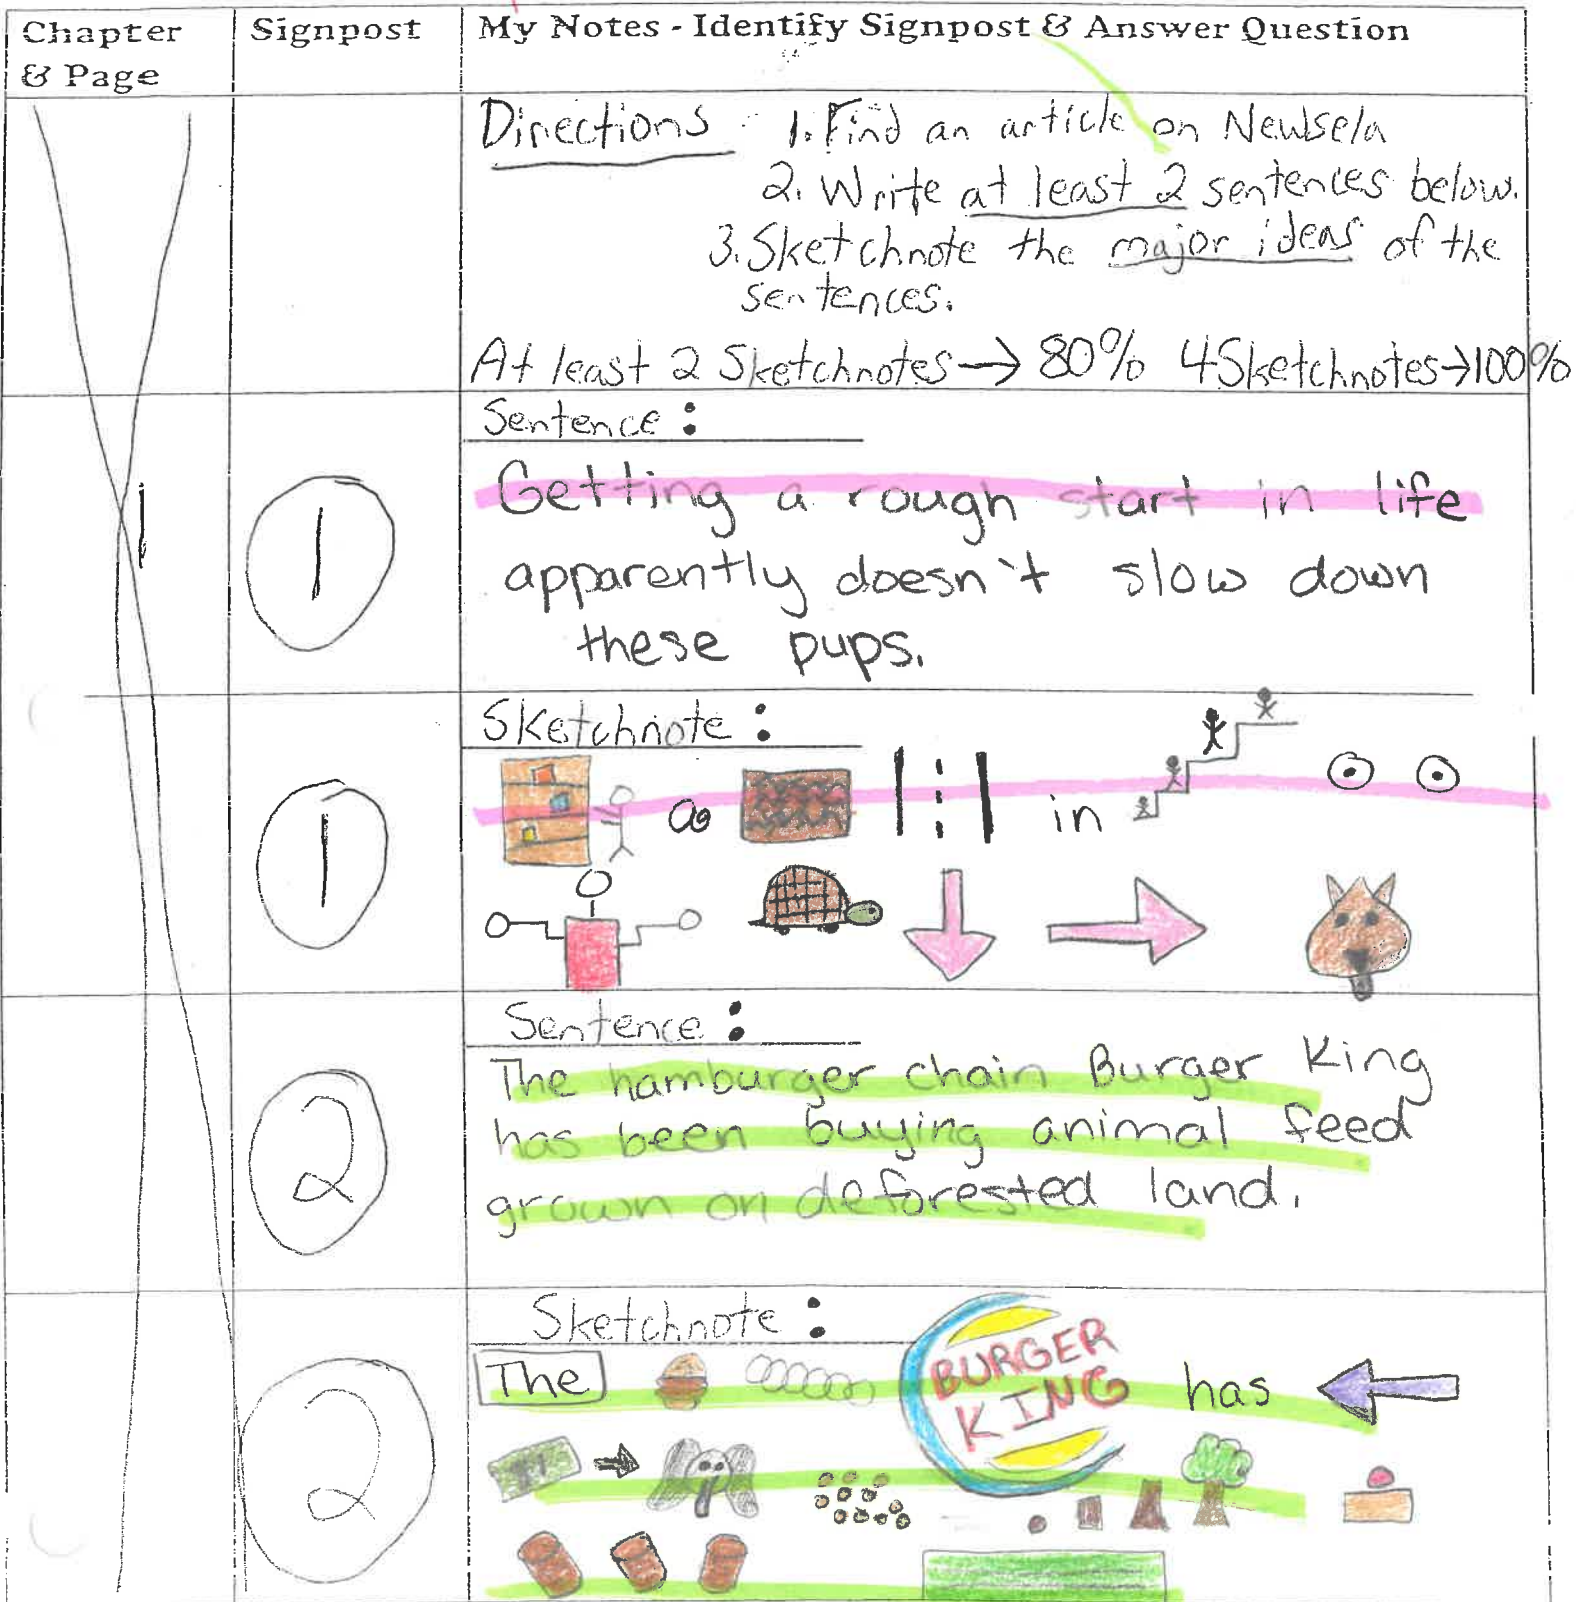 Chapter & Page
Signpost
My Notes - Identify Signpost & Answer Question
Directions 1. Find an article on Newsela
2. Write at least 2 sentences below.
3. Sketchnote the major ideas of the
sentences.
At least 2 Sketchnotes → 80% 4 Sketchnotes → 100%
1
1
Sentence:
Getting a rough start in life
apparently doesn't slow down
these pups.
1
Sketchnote:
a in
2
Sentence:
The hamburger chain Burger King
has been buying animal feed
grown on deforested land.
2
Sketchnote:
The BURGER KING has